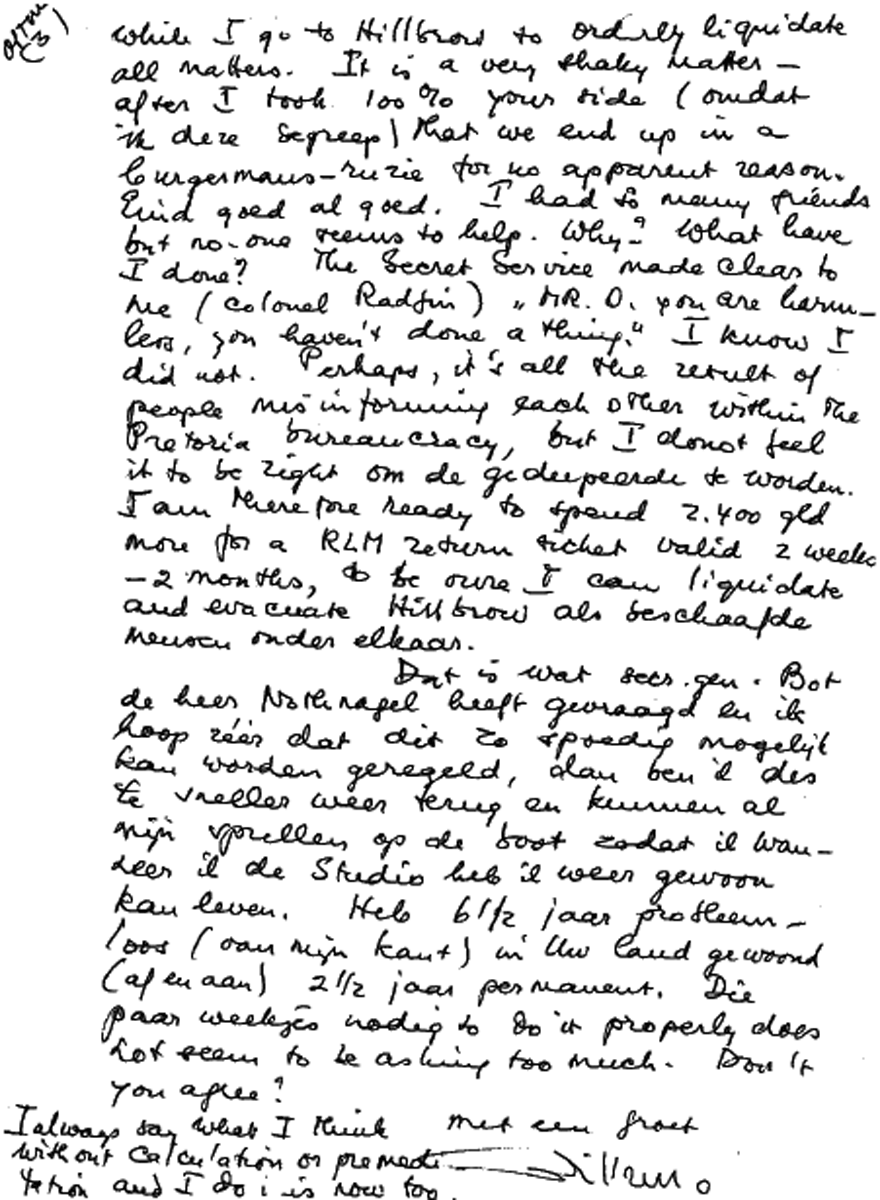 while I go to Hillbrow to orderly liquidate
all matters. It is a very shaky matter –
after I took 100% your side (omdat
ik deze begreep) that we end up in a
burgermans-ruzie for no apparent reason.
Eind goed al goed. I had so many friends
but no-one seems to help. Why? What have
I done? The Secret Service made clear to
me (colonel Radfin) „MR. O. you are harm–
less, you haven't done a thing." I know I
did not. Perhaps, it's all the result of
people misinforming each other within the
Pretoria bureaucracy, but I donot feel
it to be right om de gedupeerde te worden.
I am therefore ready to spend 2.400 gld
more for a KLM return ticket valid 2 weeks
–2 months, to be sure I can liquidate
and evacuate Hillbrow als beschaafde
mensen onder elkaar.
Dat is wat secr. gen. Bot
de heer Nothnagel heeft gevraagd en ik
hoop zéér dat dit zo spoedig mogelijk
kan worden geregeld, dan ben ik des
te sneller weer terug en kunnen al
mijn spullen op de boot zodat ik wan–
neer ik de Studio heb ik weer gewoon
kan leven. Heb 6 1/2 jaar probleem–
loos (van mijn kant) in Uw land gewoond
(af en aan) 2 1/2 jaar permanent. Die
paar weekjes nodig to do it properly does
not seem to be asking too much. Don't
you agree?
met een groet
I always say what I think
without calculation or premedi–
tation and I do is now too.
Willem O